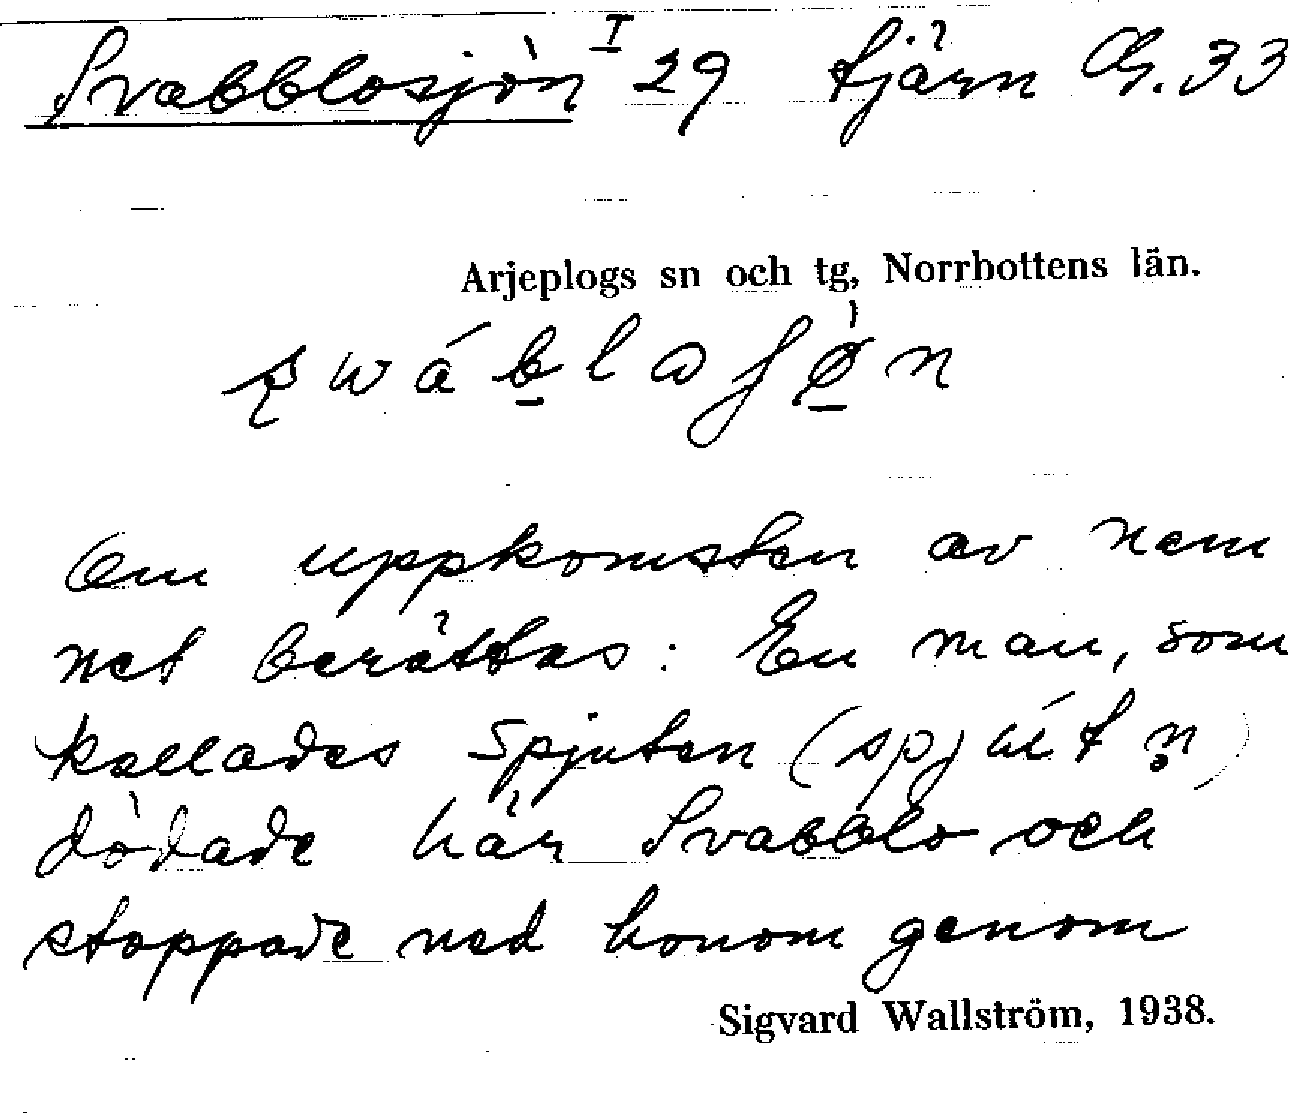 Svabblosjön I 29 tjärn Öv. 33
Arjeplogs sn och tg, Norrbottens län.
Om uppkomsten av nam
net berättas: En man, som
kallades Spjuten (spjút n̥)
dödade här Svabblo och
stoppade ned honom genom
Sigvard Wallström, 1938.